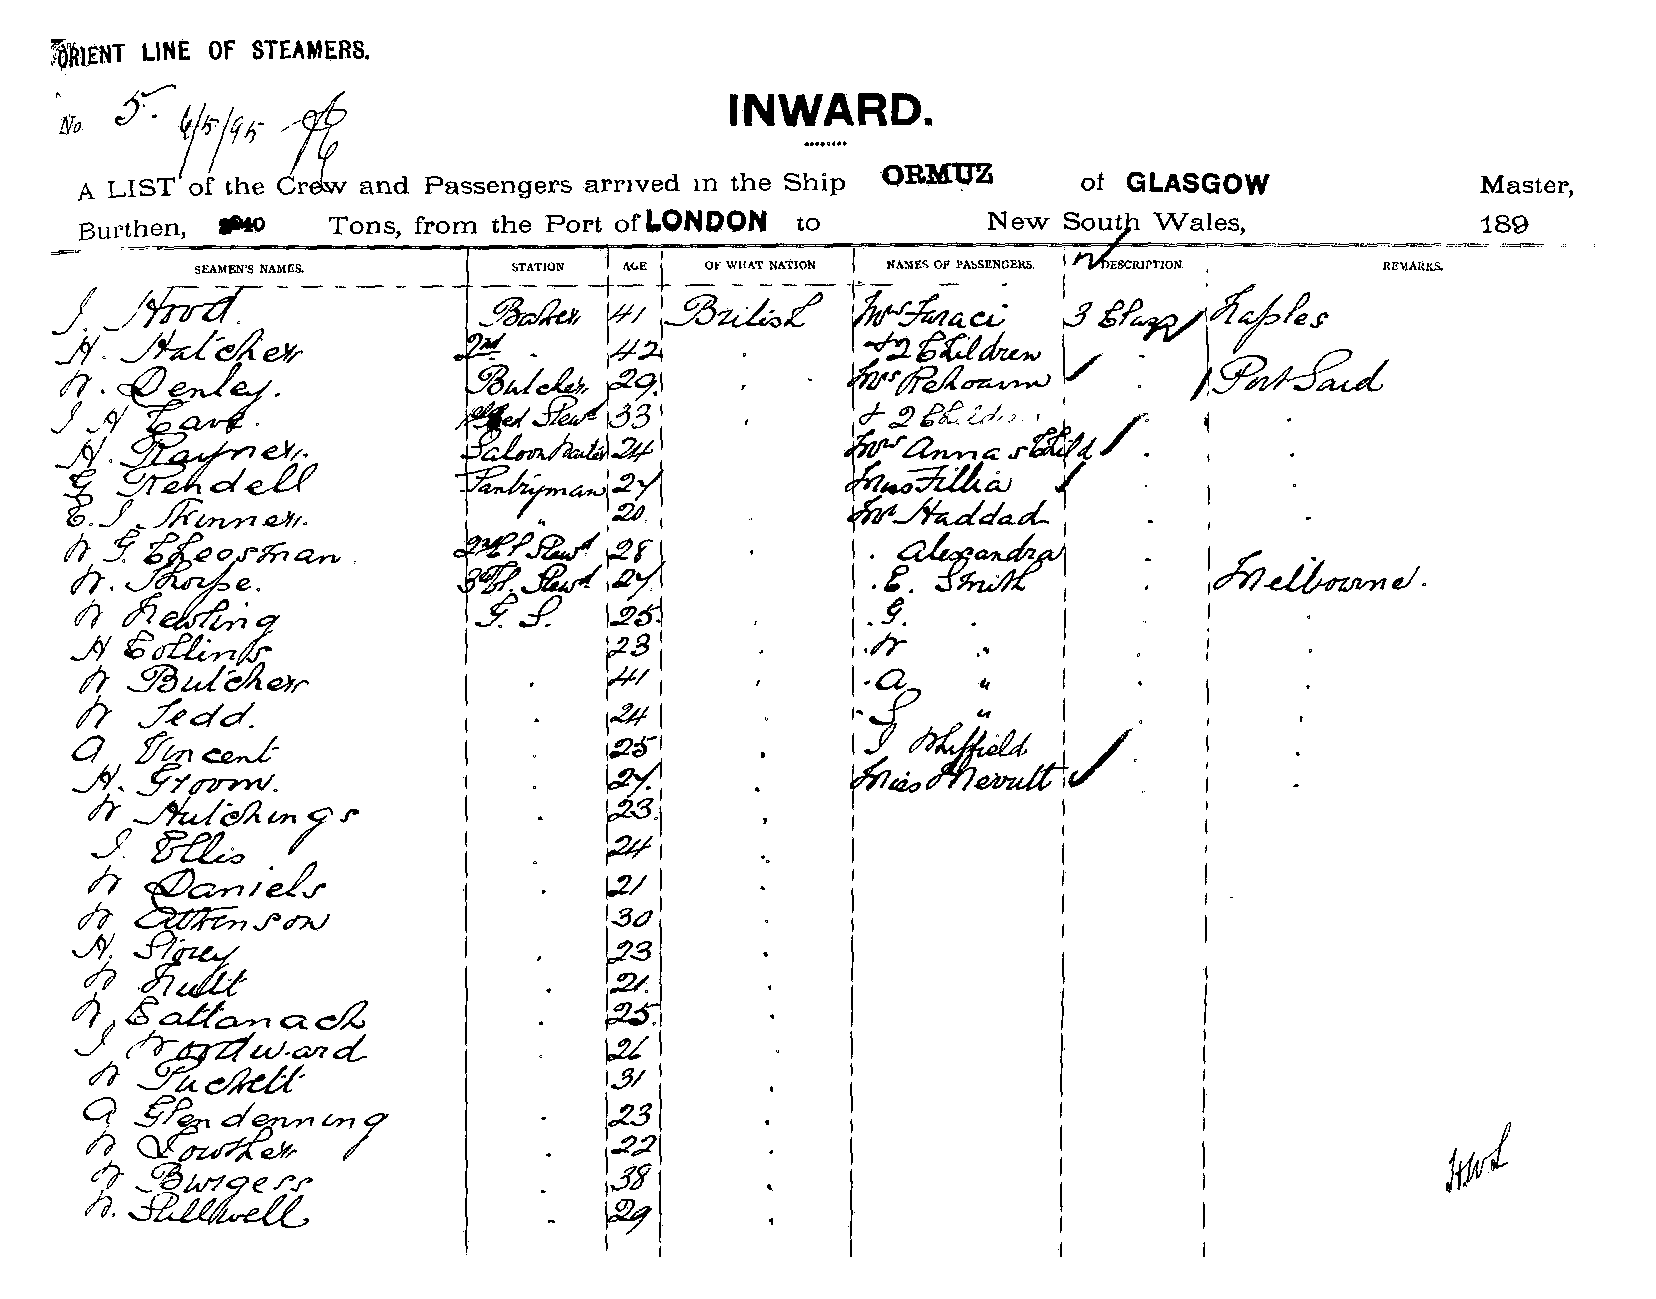 ORIENT LINE OF STEAMERS.
No. 5. 6/5/95
INWARD.
A LIST of the Crew and Passengers arrived in the Ship ORMUZ of GLASGOW Master,
Burthen, Tons, from the Port of LONDON to New South Wales, 189
SEAMEN'S NAMES. STATION AGE OF WHAT NATION NAMES OF PASSENGERS. DESCRIPTION. REMARKS.
J. Hood. Baker 41 British Mrs Faraci 3 Class Naples
H. Hatcher 2nd " 42 " + 2 Children "
W. Denley. Butcher 29 " Mrs Rehoaim " Port Said
J H Cave. Stewd 33 " + 2 Children " "
H. Rayner. Saloon Waiter 24 Mrs Anna & Child " "
G Kendell Pantryman 27 Miss Fillia " "
E. J. Skinner. " 20 Mr Haddad " "
W G Cheesman 2nd Cl Stewd 28 " " Alexandra "
W. Thorpe. 3rd Cl. Stewd 27 " E. Smith " Melbourne.
W Newling G. S. 25 " " G. " " "
H Collins 23 " " W " " "
W Butcher " 41 " " A " " "
W Tedd. " 24 " " S " " "
A Vincent " 25 " J Sheffield "
H. Groom. 27 " Miss Merrutt " "
W Hutchings " 23 "
J. Ellis " 24 "
W Daniels " 21 "
W Atkinson 30 "
H. Storey " 23 "
W Nutt " 21 "
W, Cattanach " 25 "
J Woodward " 26
W Puckett 31 "
A Glendenning " 23 "
W Lowther " 22 "
W Burgess " 38 "
W. Stillwell " 29 "
HWL